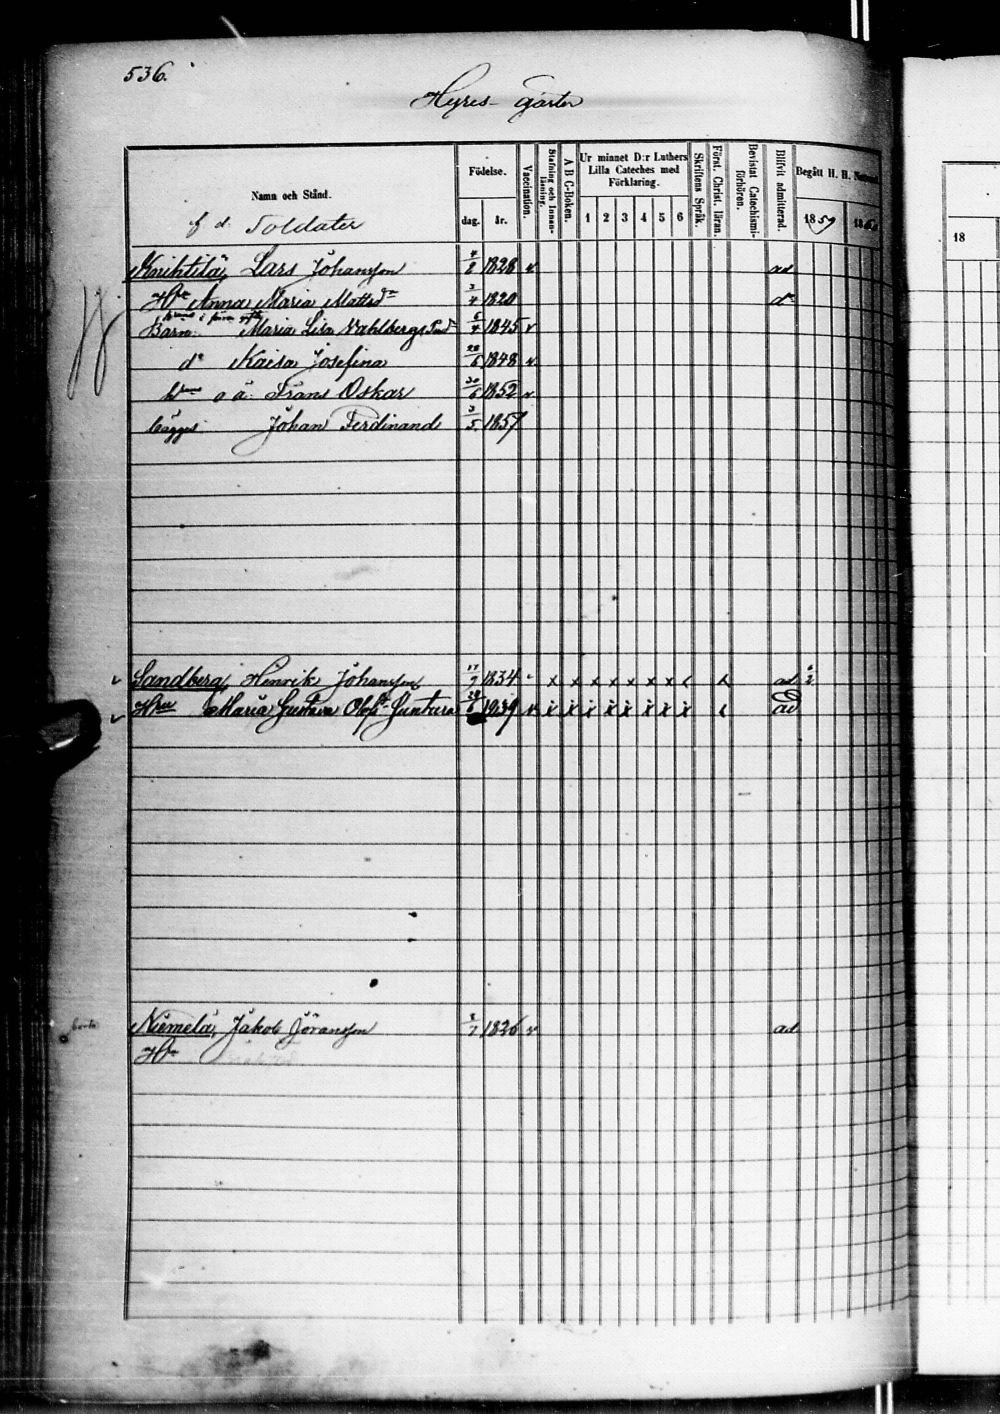 536.
Hyres-gäster
Namn och Stånd.
Födelse.
dag. år.
Vaccination.
Stafning och Innanläsning.
A B C-Boken.
Ur minnet D:r Luthers Lilla Cateches med Förklaring.
1 2 3 4 5 6
Skriftens Språk.
Först. Christ. läran.
Bevistat Catechismiförhören.
Blifvit admitterad.
Begått H. H. Nattvard
1859
18
f d. Soldater
Knihtilä, Lars Johansson 4/8 1828 v ad
Hu Anna Maria Matts dr 3/4 1820 do
hennes i förra gifte
Barn. Maria Lisa Vahlbergs 6/4 1845 v
do Kaisa Josefina 28/6 1848 v
o ä. Frans Oskar 30/6 1852 v
bägges Johan Ferdinand 3/5 1857
Sandberg, Henrik Johansson 17/7 1834 x x x x x x x x ad
Hru Maria Gustava Olofs 28/6 1839 v x x x x x x x x ad
borta Niemelä, Jakob Jöransson 2/7 1826 v ad
Hu
18